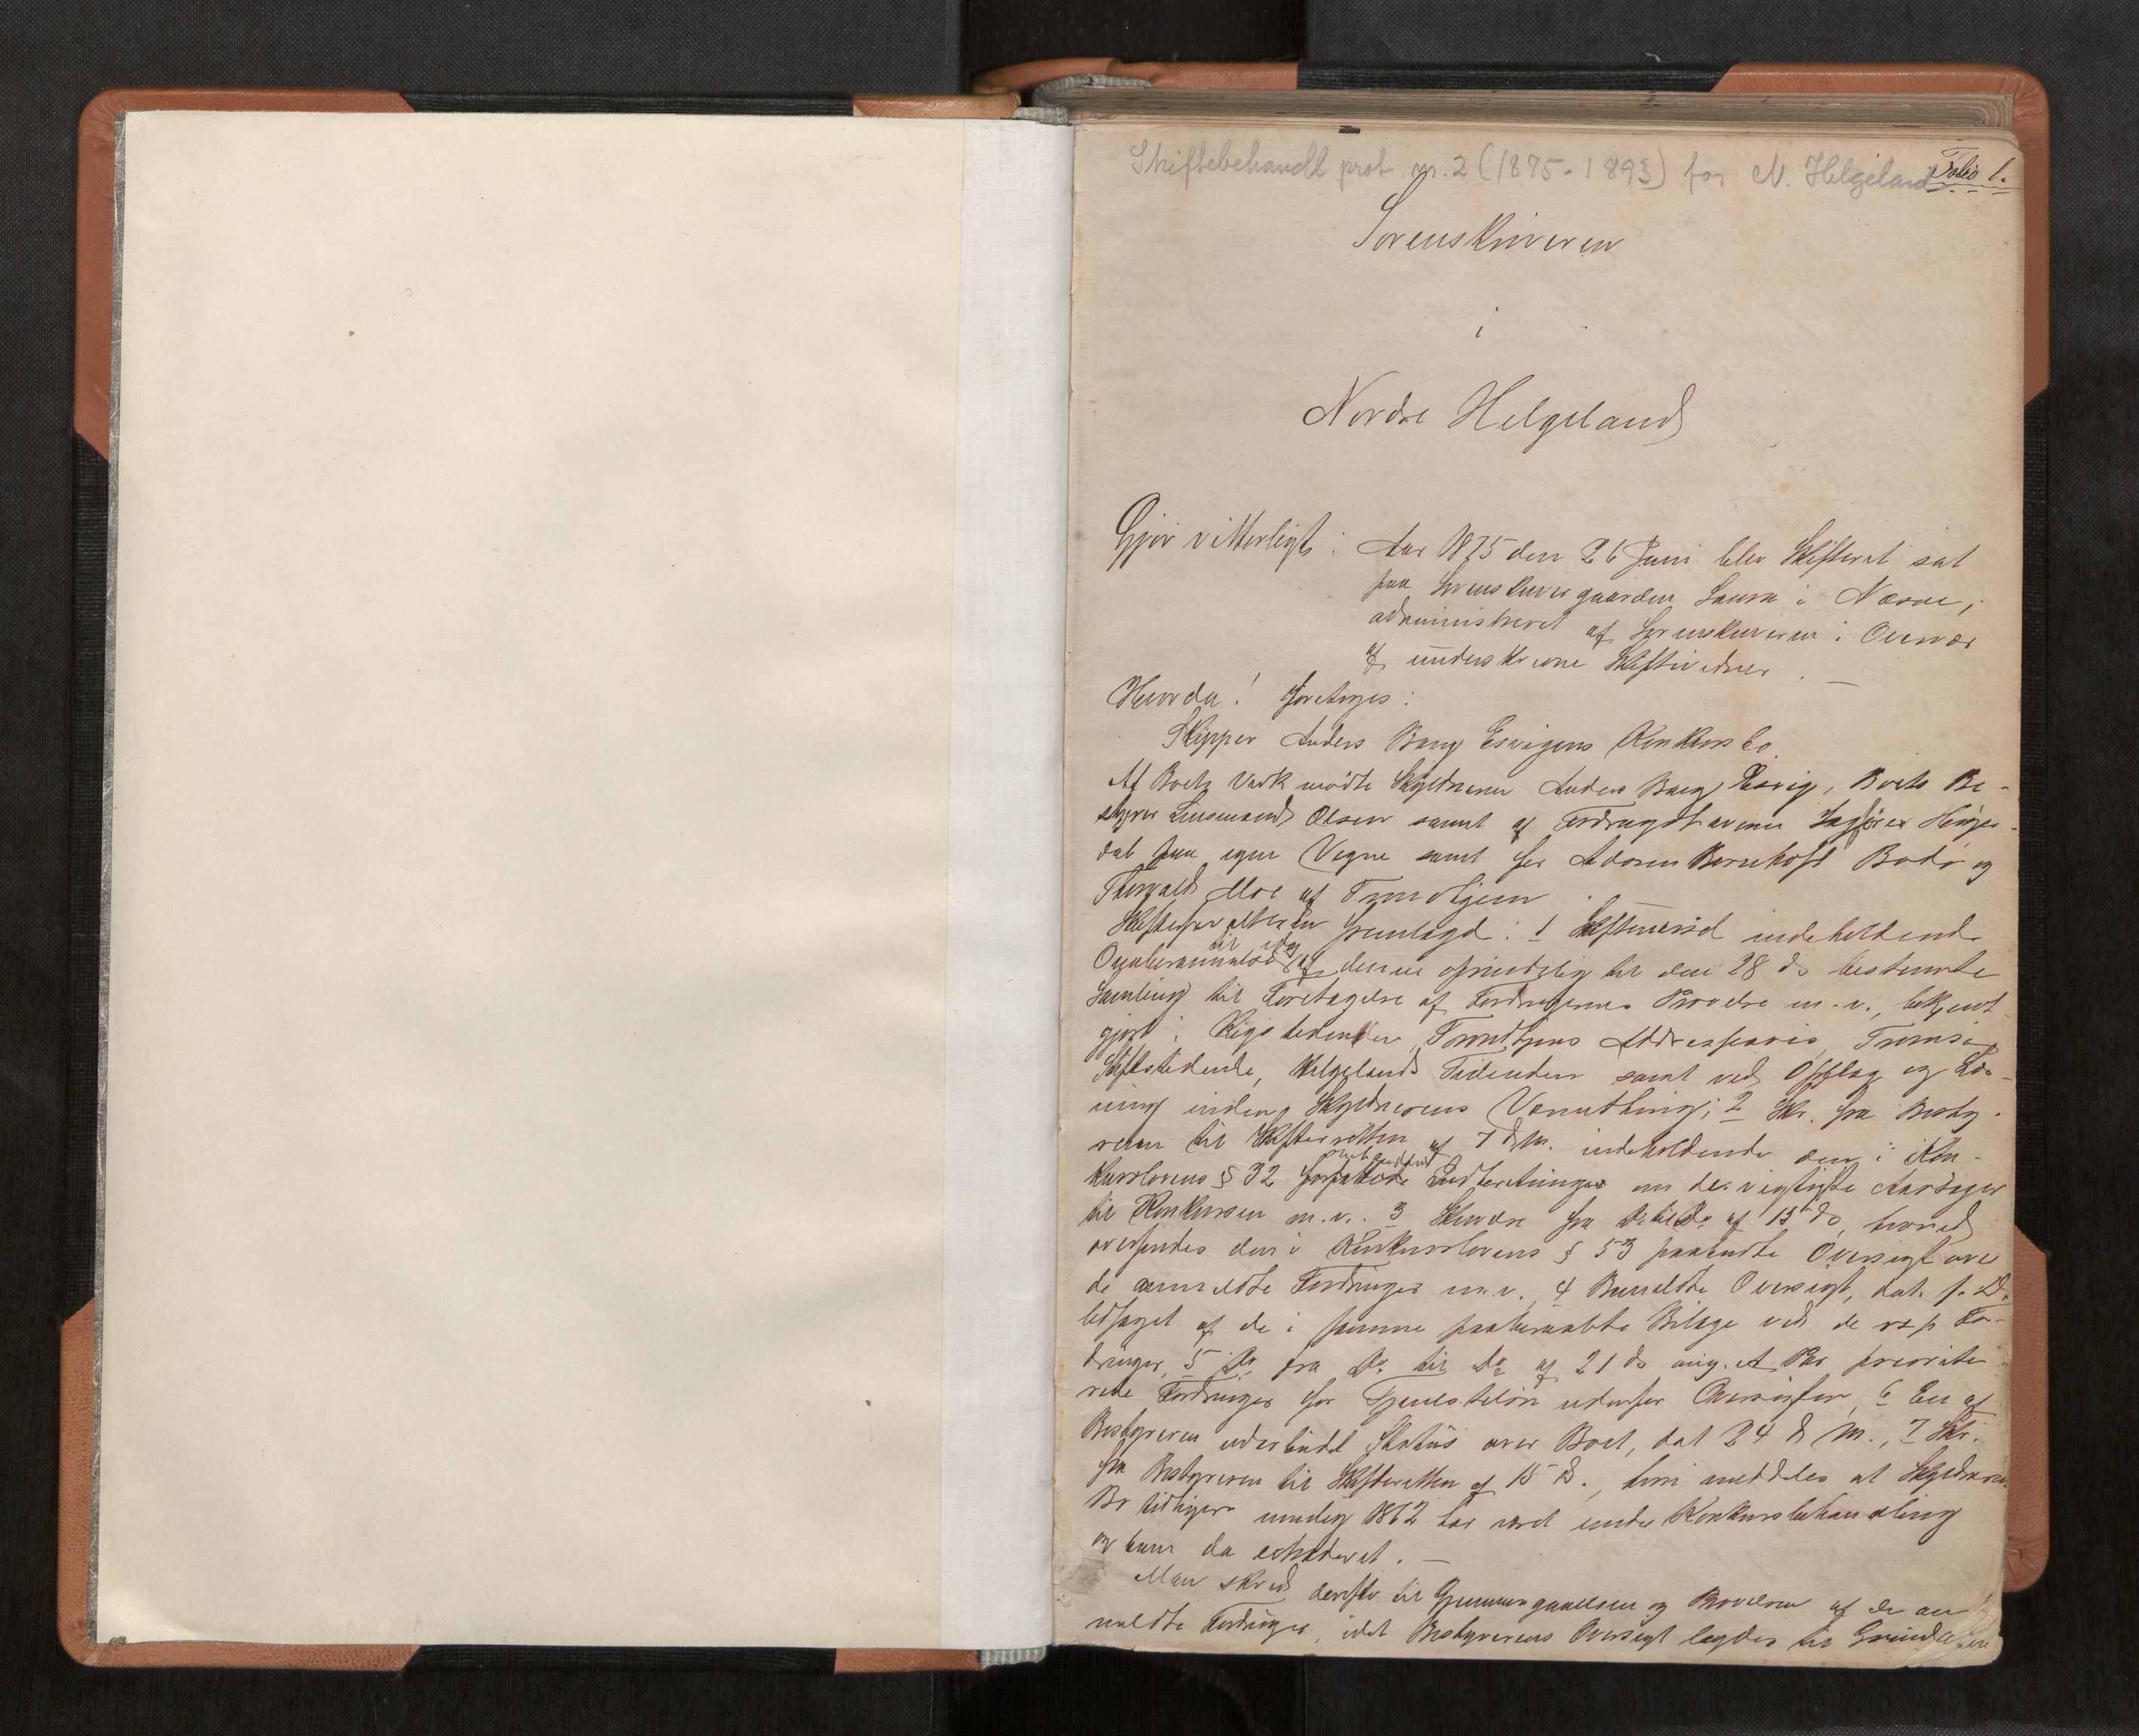 Skiftebehandl prot. nr. 2 (1875-1893) for N. Helgeland
Folio 1.
Sorenskriveren
i
Nordre Helgeland
Gjør vitterligt: Aar 1875 den 26 Juni blev Skifteret sat
paa Sorenskrivergaarden i Næsne,
administreret af Sorenskriveren i
af underskrevne Skiftevidner. —
Hvorda! foretoges:
Skipper Anders Bang Esvigens Konkursbo.
Af Boets Vedk mødte Skyldneren Anders Bang Esvig, Boets Be-
styrer Lensmand Olsen samt af Fordringshaverne Sagfører
dal paa egne Vegne samt for Bernhoft Bodø og
Thorvald Moe af Trondhjem.
Skifteforvalteren fremlagde: 1 indeholdende
til idag
Omberammelse af denne oprindelig til den 28 ds bestemte
Samling til Foretagelse af Fordringernes Prøvelse m.v., bekjent-
gjort i Rigstidenden, Trondhjems Addresseavis, Tromsø
Stiftstidende, Helgelands Tidende samt ved Opslag og Læs-
ning inden Skyldnerens Værnething; 2 Skr. fra Besty-
reren til Skifteretten af 7 d.M. indeholdende den i Kon-
kurslovens § 32 Indberetning om de vigtigste Aarsager
til Konkursen m.v. 3 Skrivelse fra Do til Do af 15 ds, hvorved
oversendes den i Konkurslovens § 53 paabudte Oversigt over
de anmeldte Fordringer m.v. 4 Bemeldte Oversigt, dat. s. D.
ledsaget af de i samme paaberaabte Bilage ved de resp For-
dringer, 5 Do fra Do til Do af 21 ds ang. et Par priorite-
rede Fordringer for Tjenesteløn udenfor Oversigten, 6 En af
Bestyreren udarbeidet Status over Boet, dat 24 d M., 7 Skr.
fra Bestyreren til Skifteretten af 15 ds., hvori meddeles at Skyldnerens
Bo tidligere nemlig 1862 har været under Konkursbehandling
og han da extraderet. —
Man skred derefter til Gjennemgaaelsen og Prøvelsen af de an-
meldte Fordringer, idet Bestyrerens Oversigt lagdes til Grund